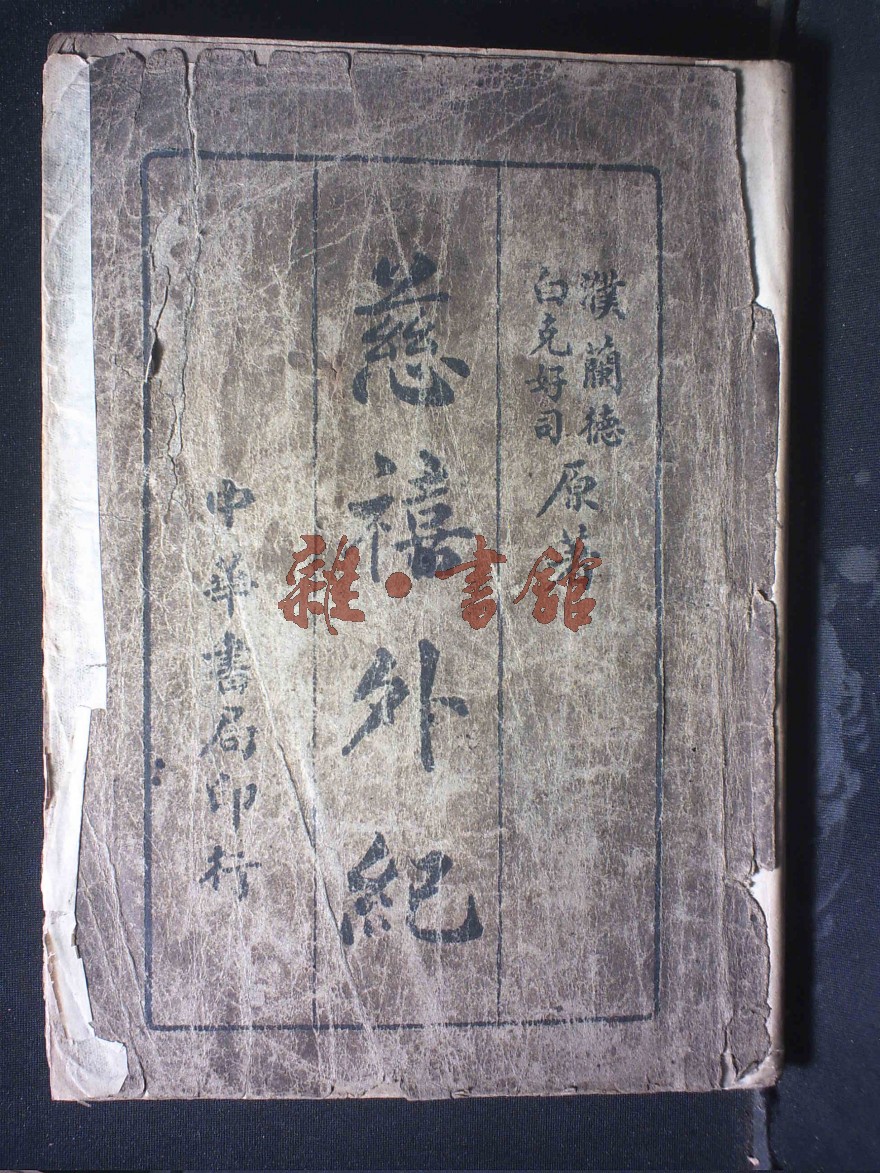 濮蘭德
白克好司
原著
慈禧外紀
中華書局印行
雜·書館